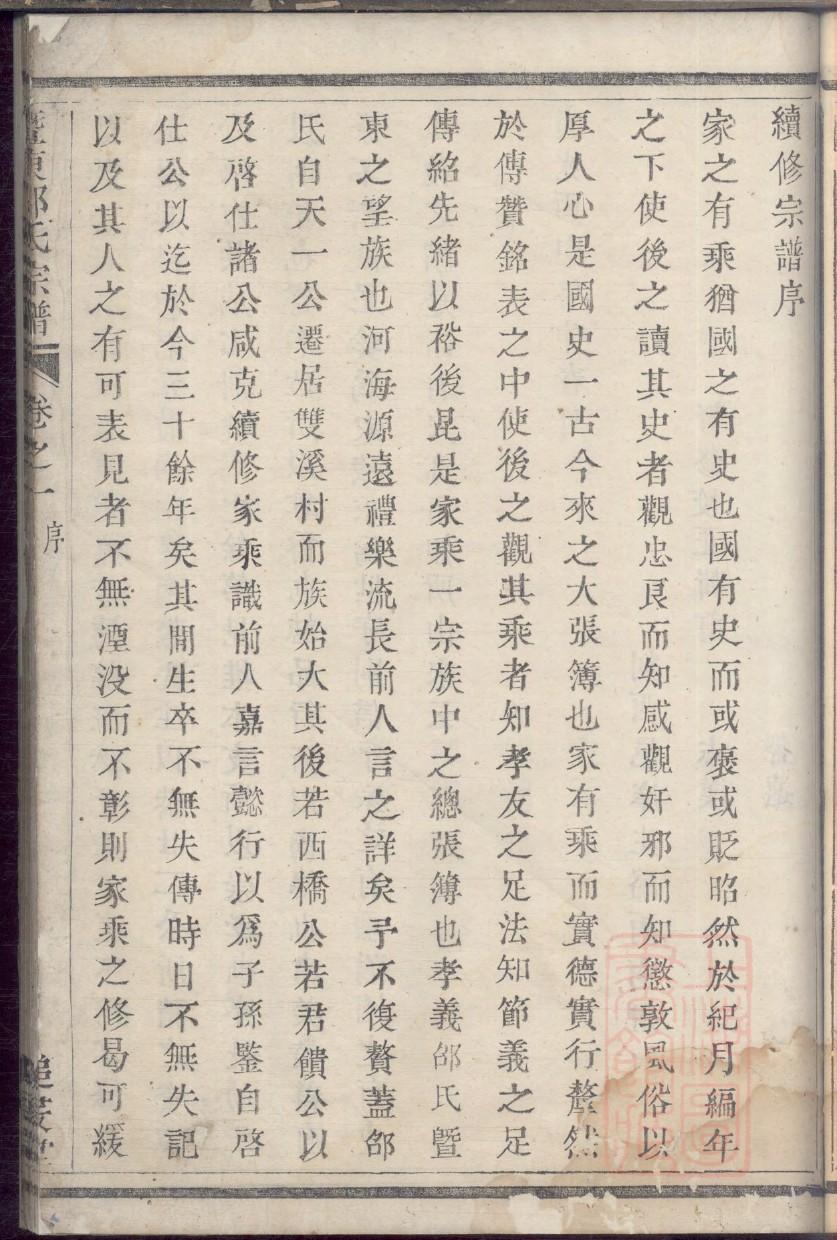 續修宗譜序
家之有乘猶國之有史也國有史而或褒或貶昭然於紀月編年
之下使後之讀其史者觀忠良而知感觀奸邪而知懲敦風俗以
厚人心是國史一古今來之大張簿也家有乘而實德實行釐然
於傳贊銘表之中使後之觀其乘者知孝友之足法知節義之足
傳紹先緒以裕後昆是家乘一宗族中之總張簿也孝義邵氏暨
東之望族也河海源遠禮樂流長前人言之詳矣予不復贅蓋邵
氏自天一公遷居雙溪村而族始大其後若西橋公若君饋公以
及啓仕諸公咸克續修家乘識前人嘉言懿行以爲子孫鑒自啓
仕公以迄於今三十餘年矣其間生卒不無失傳時日不無失記
以及其人之有可表見者不無湮没而不彰則家乘之修曷可緩
暨東邵氏宗譜 卷之一 序